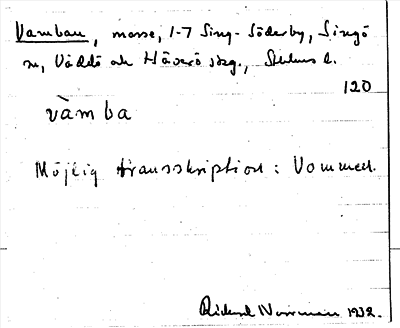 Vamban, mosse, 1-7 Sing-Söderby, Singö
sn, Väddö och Häverö skg., Sthlms l.
120
vàmba
Möjlig transskription: Vommen.
Rickard Norrman 1932.